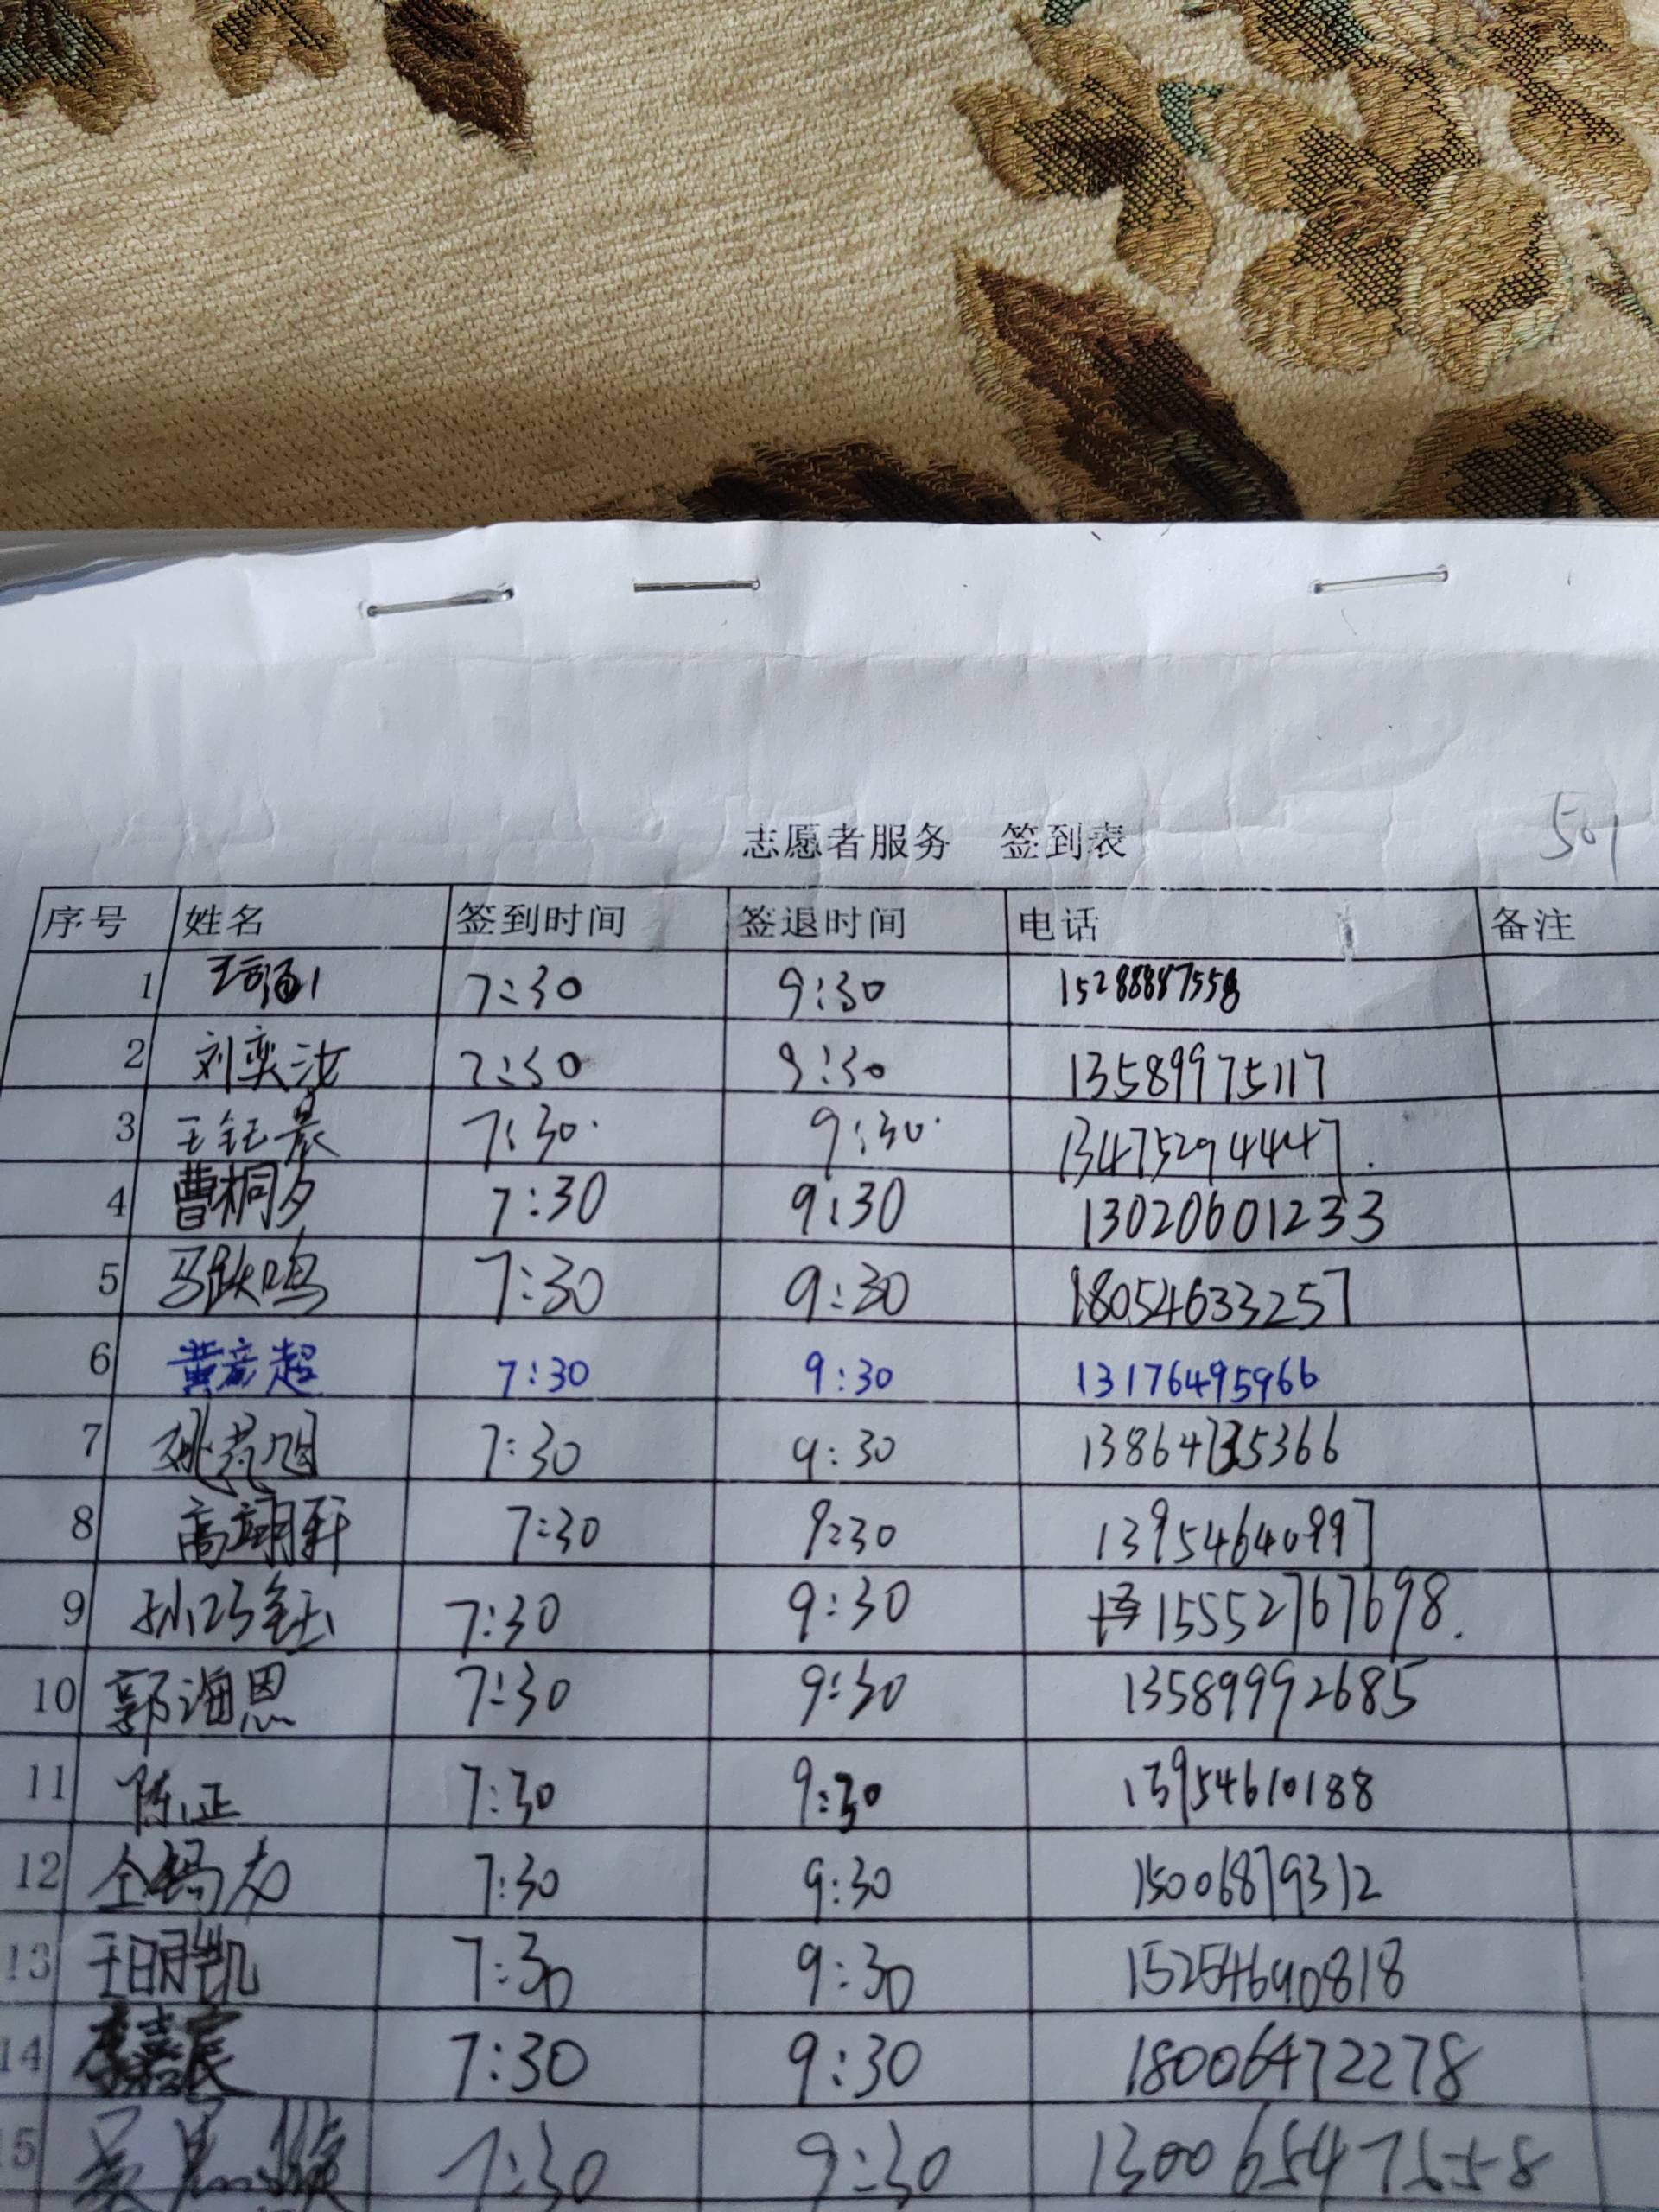 501
志愿者服务 签到表
序号 姓名 签到时间 签退时间 电话 备注
1 7:30 9:30 15288887558
2 刘奕汝 7:30 9:30 13589975117
3 王钰晨 7:30. 9:30. 13475294447.
4 曹桐夕 7:30 9:30 13020601233
5 马跃鸣 7:30 9:30 18054633257
6 黄彦超 7:30 9:30 13176495966
7 7:30 9:30
8 高翊轩 7:30 9:30 13954640997
9 孙巧钰 7:30 9:30 15552767698.
10 郭海恩 7:30 9:30 13589992685
11 陈正 7:30 9:30 13954610188
12 7:30 9:30 15006879312
13 王明凯 7:30 9:30 15254690818
14 李嘉宸 7:30 9:30 18006472278
15 7:30 9:30